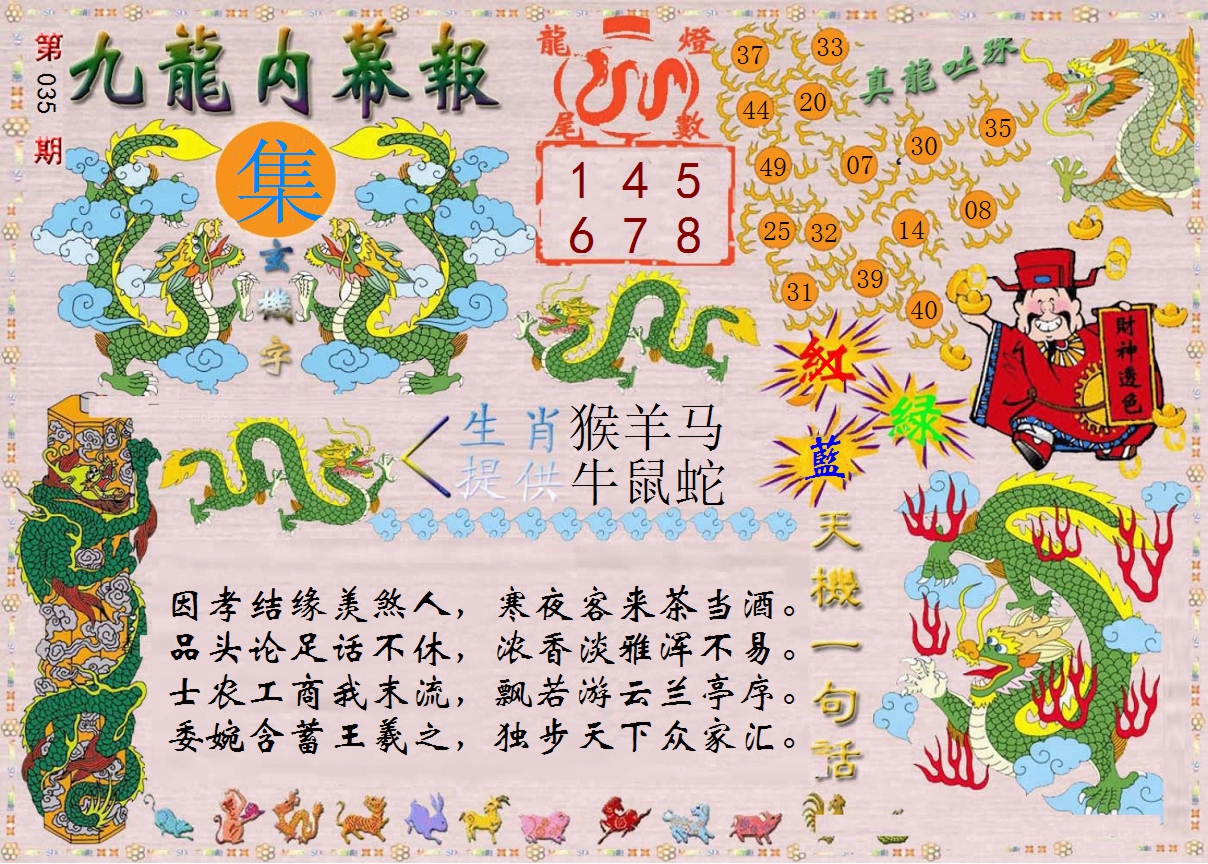 第035期
九龍内幕報
集
玄機字
龍燈
尾數
1 4 5
6 7 8
真龍吐珠
37
33
44
20
35
30
49
07
08
25
32
14
39
31
40
財神透色
紅
綠
藍
生肖 猴羊马
提供 牛鼠蛇
天機一句話
因孝结缘羡煞人，寒夜客来茶当酒。
品头论足话不休，浓香淡雅浑不易。
士农工商我末流，飘若游云兰亭序。
委婉含蓄王羲之，独步天下众家汇。